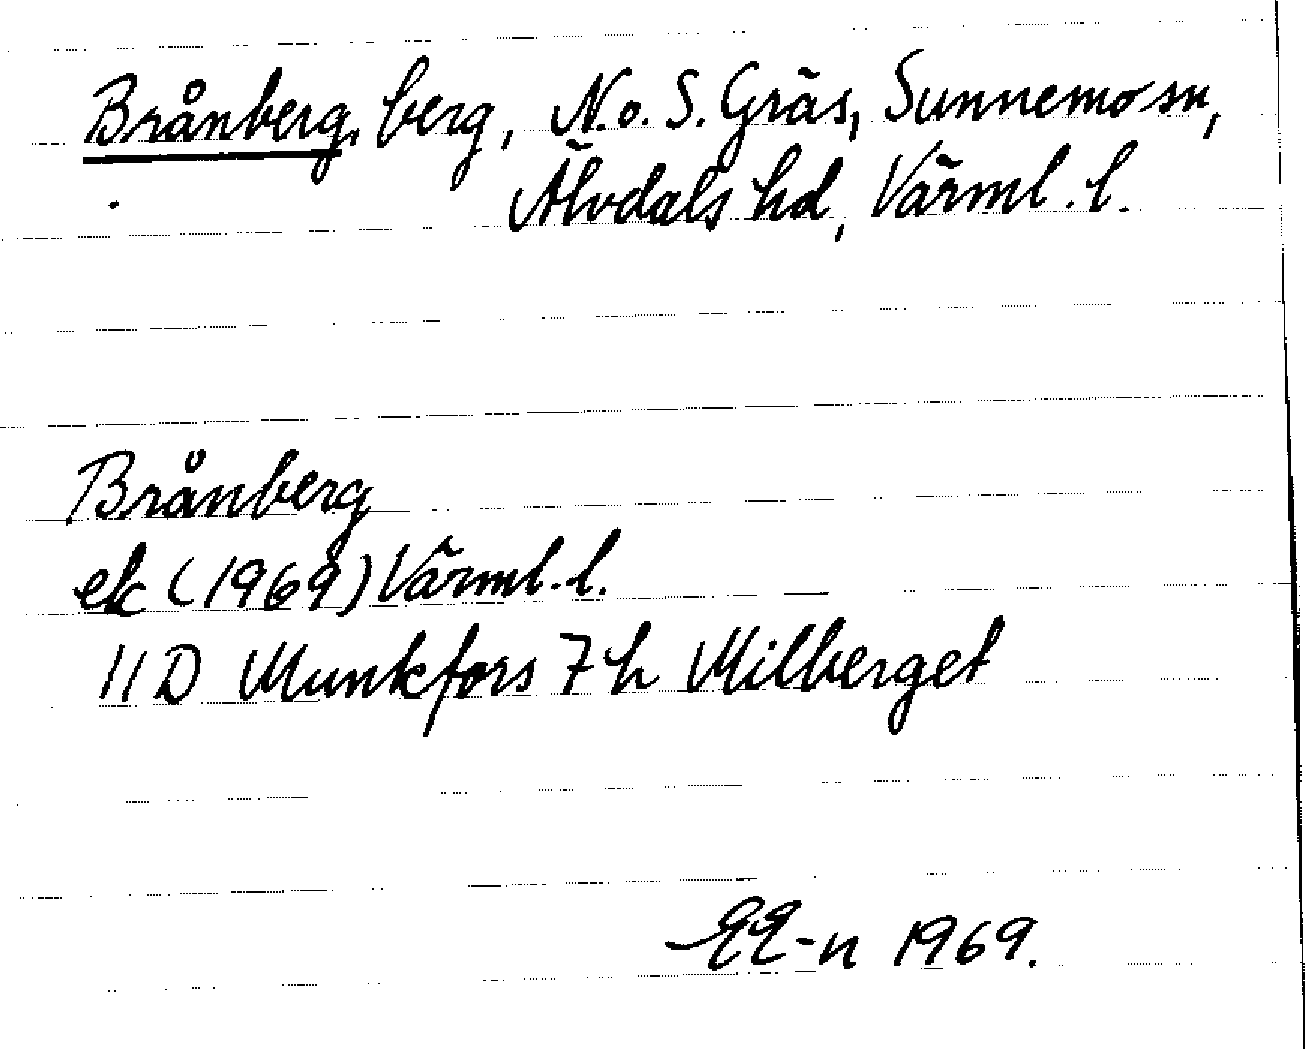 Brånberg, berg, N.o. S. Gräs, Sunnemo sn,
Älvdals hd, Värml. l.
Brånberg
ek (1969) Värml. l.
11 D Munkfors 7 h Milberget
EE-n 1969.